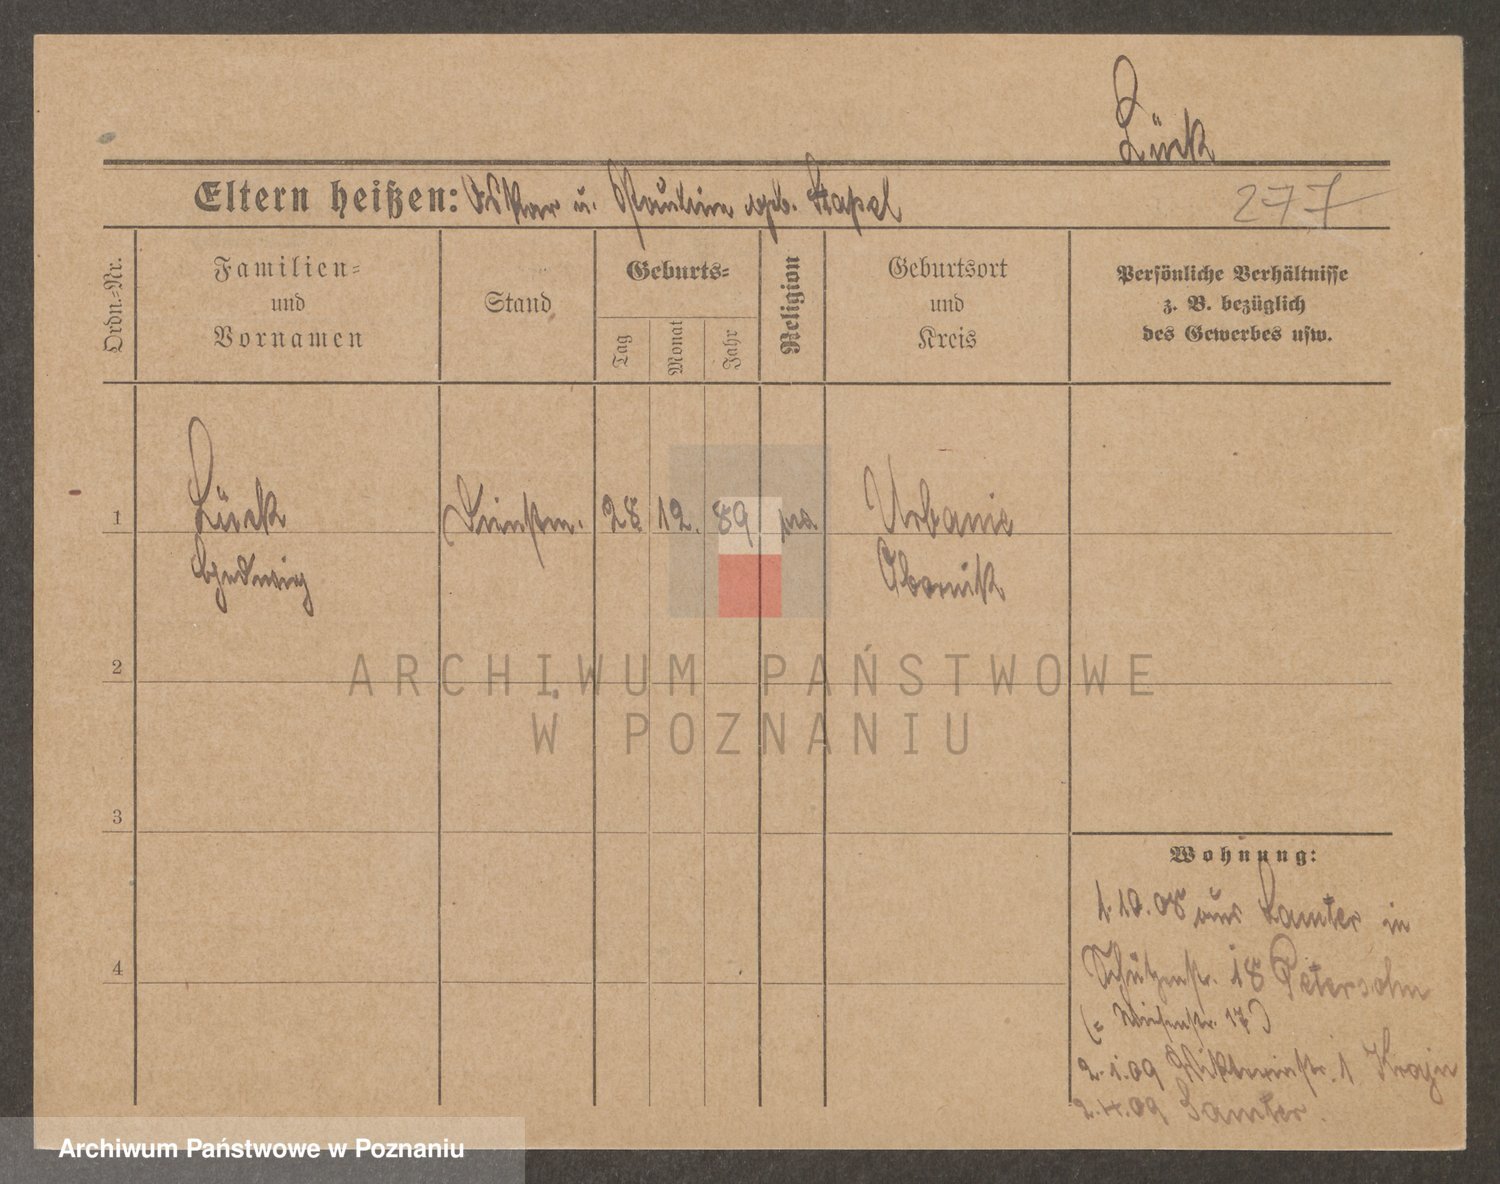 Lück
Eltern heißen: Oskar u. Pauline geb. Stapel
277
Ordn.=Nr.
Familien=
und
Vornamen
Stand
Geburts=
Tag
Monat
Jahr
Religion
Geburtsort
und
Kreis
Persönliche Verhältnisse
z. B. bezüglich
des Gewerbes usw.
1
Lück
Hedwig
Dienstm.
28. 12. 89
Urbanie
Obornik
2
3
4
ARCHIWUM PAŃSTWOWE
W POZNANIU
Wohnung:
1.10.08 aus Samter in
Schützenstr. 18 Petersohn
(= Wiesenstr. 17)
2.1.09 Viktoriastr. 1
2.4.09 Samter.
Archiwum Państwowe w Poznaniu